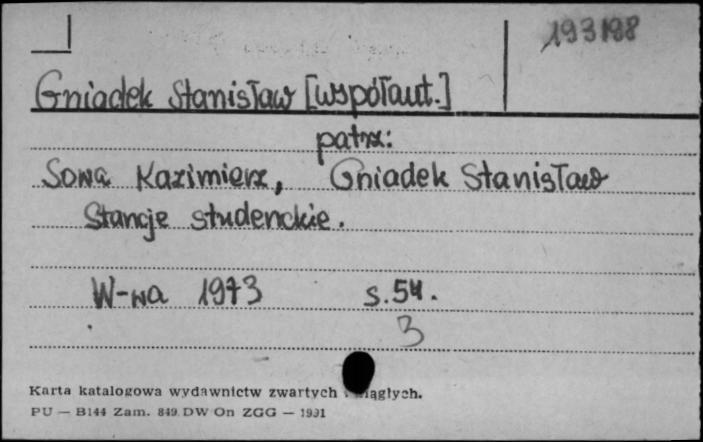 193198
Gniadek Stanisław [współaut.]
patrz:
Sowa Kazimierz, Gniadek Stanisław
Stancje studenckie.
W-wa 1973 s. 54.
3
Karta katalogowa wydawnictw zwartych i ciągłych.
PU — B144 Zam. 849 DW On ZGG — 1991